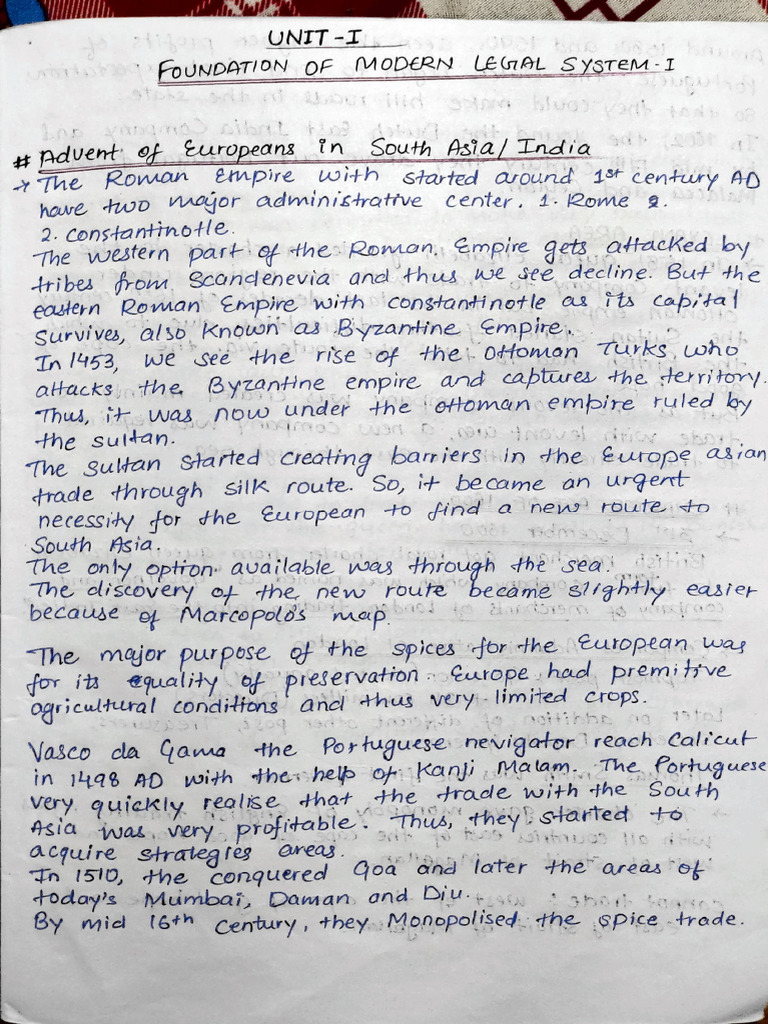 UNIT-I
FOUNDATION OF MODERN LEGAL SYSTEM-I
# Advent of Europeans in South Asia/India
→ The Roman Empire with started around 1st century AD
have two major administrative center. 1. Rome 2.
2. constantinotle.
The western part of the Roman Empire gets attacked by
tribes from Scandenevia and thus we see decline. But the
eastern Roman Empire with constantinotle as its capital
survives, also known as Byzantine Empire.
In 1453, we see the rise of the Ottoman Turks who
attacks the Byzantine empire and captures the territory.
Thus, it was now under the ottoman empire ruled by
the sultan.
The sultan started creating barriers in the Europe asian
trade through silk route. So, it became an urgent
necessity for the European to find a new route to
South Asia.
The only option available was through the sea.
The discovery of the new route became slightly easier
because of Marcopolo's map.
The major purpose of the spices for the European was
for its equality of preservation. Europe had premitive
agricultural conditions and thus very limited crops.
Vasco da Gama the Portuguese nevigator reach Calicut
in 1498 AD with the help of Kanji Malam. The Portuguese
very quickly realise that the trade with the South
Asia was very profitable. Thus, they started to
acquire strategies areas.
In 1510, the conquered Goa and later the areas of
today's Mumbai, Daman and Diu.
By mid 16th Century, they Monopolised the spice trade.